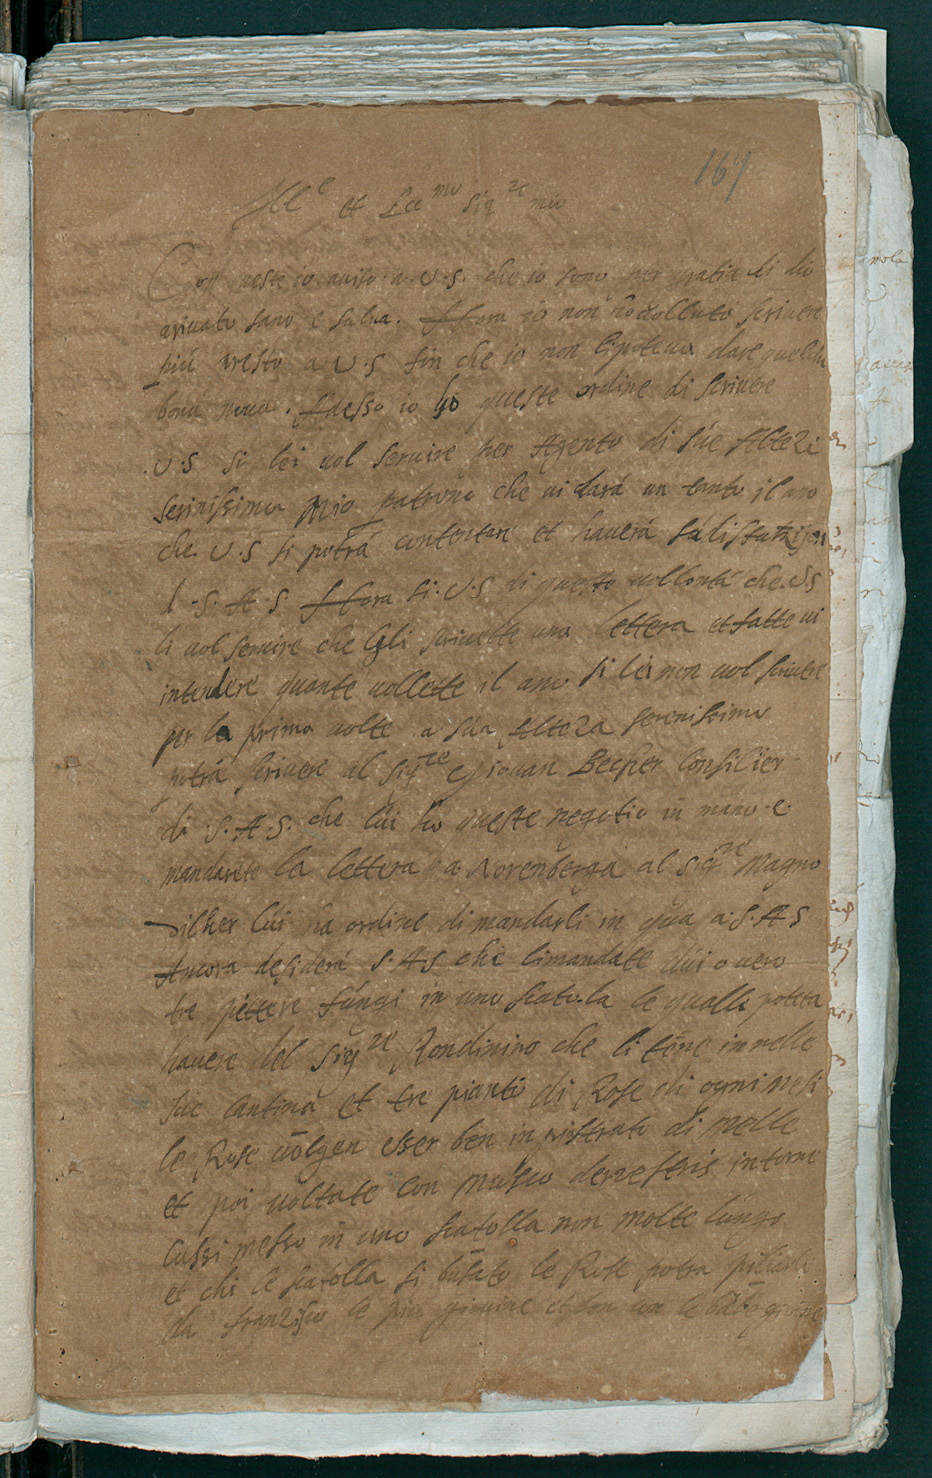 167
Ill^e et Ecc^mo Sig^re mio
Con queste io aviso a. V.S. che io sono per gratia di dio
arivato sano e salva. Hora io non ho volluto scrivere
piu presto a V.S fin che io non li poteva dare qualche
bona nova. Adesso io ho queste ordine di scrivere
.V.S si lei vol servire per Agento di sue Altezi
serinissimo Mio patrono che vi dara un tanto il ano
che. V.S si potra contentare et havera sadisfatzion
S. A. S. Hora si. V.S di questo vollonta che. VS
li vol servire che gli scrivette una lettera et fatte vi
intendere quante vollette il ano si lei non vol scrivere
per la prima volte a sua Alteza serenissimo
potra scrivere al Sig^re Giovan Becher Consilier
di S. A. S. che lui ho queste negotio in mano e.
mandarete la lettera a Norenberga al Sig^re Magno
Dilher lui ha ordine di mandarli in qua a. S. A S
Ancora desidera S. A S che li mandate dui o vero
tre pettere fungi in uno scatola le qualli poteta
havere del Sig^re Rondinino che li tone in nelle
sue Cantina et tre piante di Rose di ogni mesi
le Rose volgen esser ben in pistrato di melle
et poi voltate con musco derrestris intorno
Cussi messo in uno scatolla non molte lungo
et chi le scatolla si busato le Rose potra pillarle
da franzisco le piu giovine